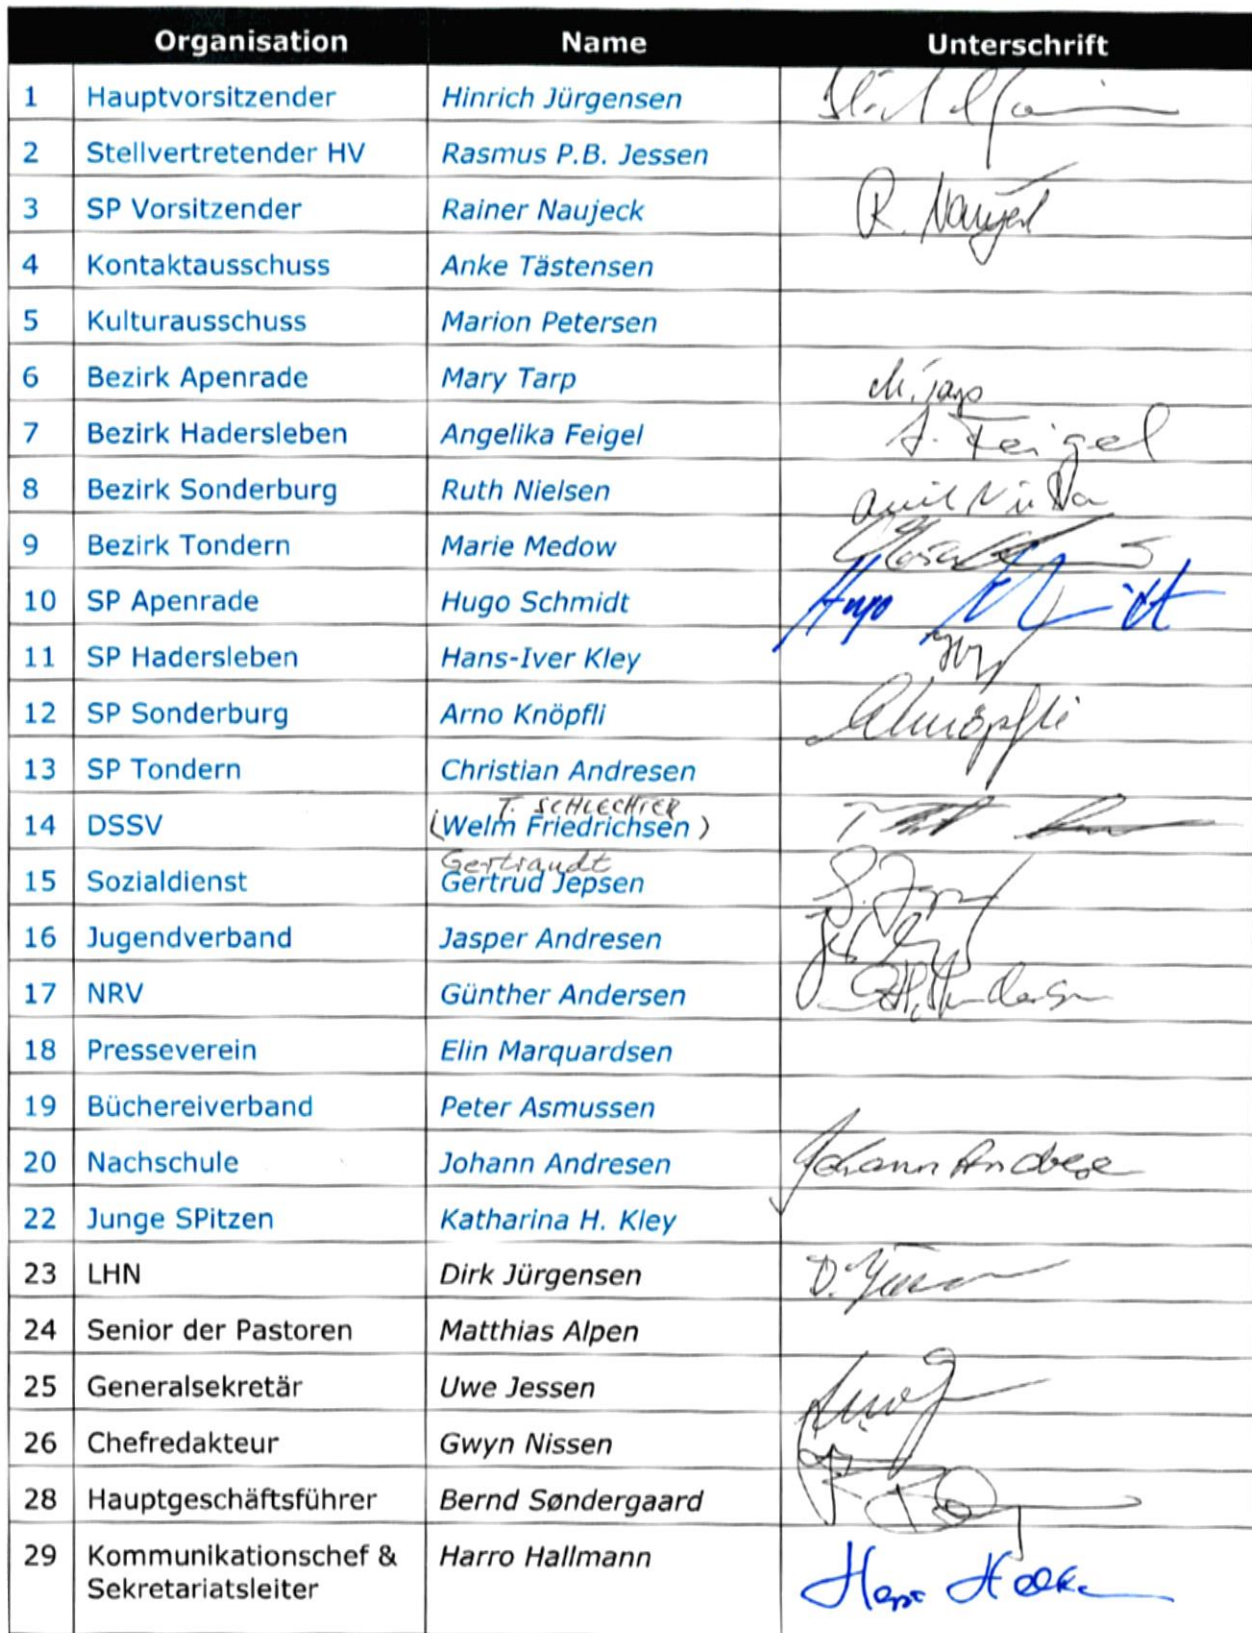 Organisation Name Unterschrift
1 Hauptvorsitzender Hinrich Jürgensen
2 Stellvertretender HV Rasmus P.B. Jessen
3 SP Vorsitzender Rainer Naujeck R. Naujeck
4 Kontaktausschuss Anke Tästensen
5 Kulturausschuss Marion Petersen
6 Bezirk Apenrade Mary Tarp M. Tarp
7 Bezirk Hadersleben Angelika Feigel A. Feigel
8 Bezirk Sonderburg Ruth Nielsen
9 Bezirk Tondern Marie Medow
10 SP Apenrade Hugo Schmidt Hugo Schmidt
11 SP Hadersleben Hans-Iver Kley
12 SP Sonderburg Arno Knöpfli AKnöpfli
13 SP Tondern Christian Andresen
T. SCHLECHTER
14 DSSV (Welm Friedrichsen)
Gertraudt
15 Sozialdienst Gertrud Jepsen
16 Jugendverband Jasper Andresen
17 NRV Günther Andersen
18 Presseverein Elin Marquardsen
19 Büchereiverband Peter Asmussen
20 Nachschule Johann Andresen Johann Andresen
22 Junge SPitzen Katharina H. Kley
23 LHN Dirk Jürgensen
24 Senior der Pastoren Matthias Alpen
25 Generalsekretär Uwe Jessen
26 Chefredakteur Gwyn Nissen
28 Hauptgeschäftsführer Bernd Søndergaard
29 Kommunikationschef & Harro Hallmann
Sekretariatsleiter